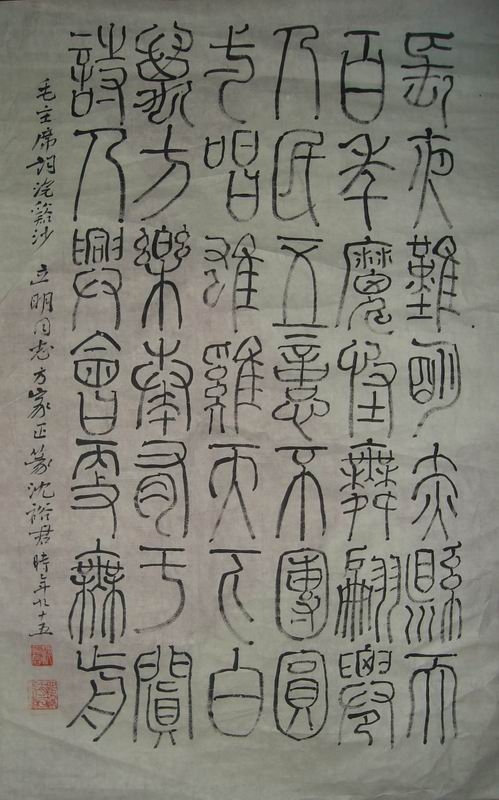 長夜難明赤縣天
百年魔怪舞翩躚
人民五億不團圓
一唱雄雞天下白
萬方樂奏有于闐
詩人興會更無前
毛主席詞浣谿沙 立明同志方家正篆 沈裕君時年九十五